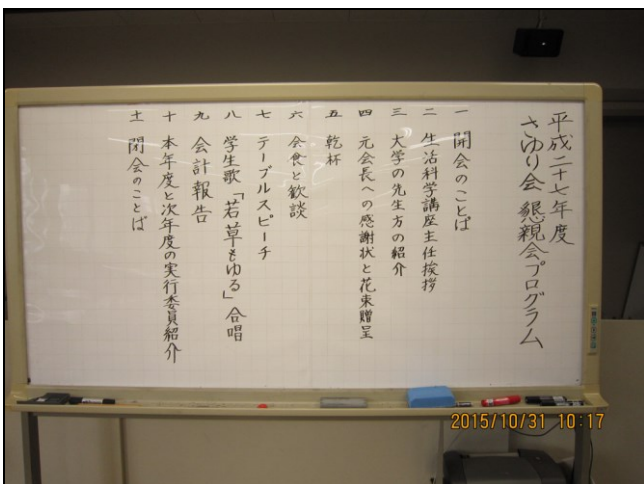 平成二十七年度
さゆり会 懇親会プログラム
一 開会のことば
二 生活科学講座主任挨拶
三 大学の先生方の紹介
四 元会長への感謝状と花束贈呈
五 乾杯
六 会食と歓談
七 テーブルスピーチ
八 学生歌「若草もゆる」合唱
九 会計報告
十 本年度と次年度の実行委員紹介
十一 閉会のことば
2015/10/31 10:17